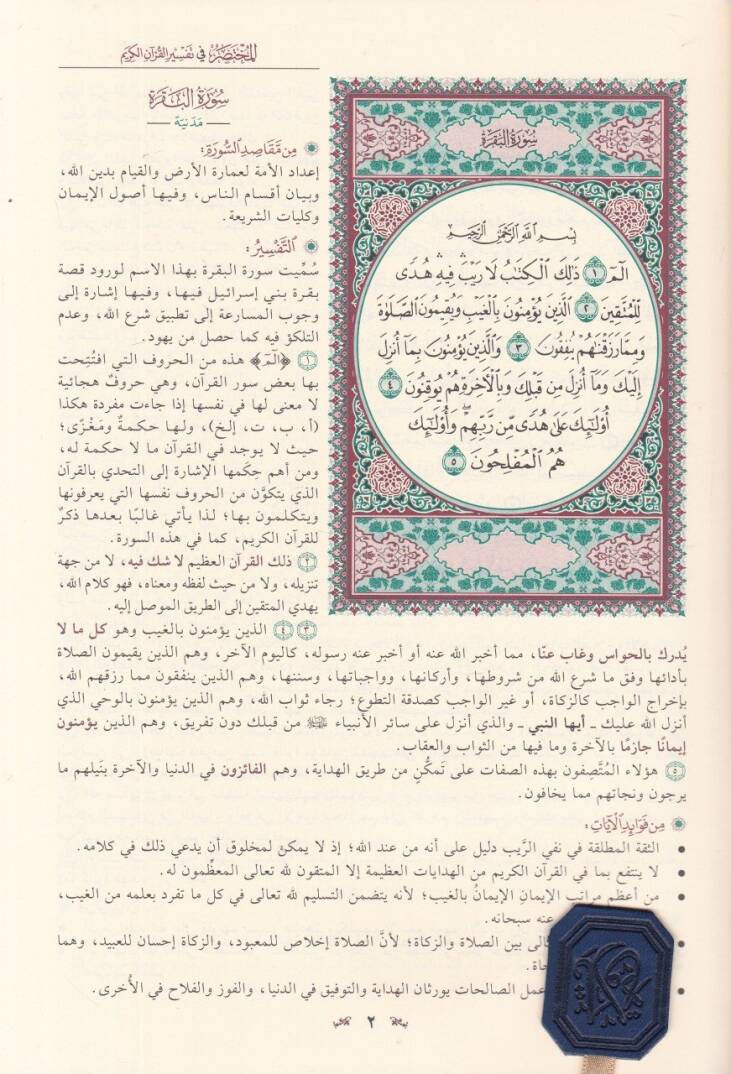 المختصر في تفسير القرآن الكريم
سُورَةُ البَقَرَةِ
بِسْمِ اللَّهِ الرَّحْمَٰنِ الرَّحِيمِ
الٓمٓ ١ ذَٰلِكَ الْكِتَٰبُ لَا رَيْبَ ۛ فِيهِ ۛ هُدًى
لِّلْمُتَّقِينَ ٢ الَّذِينَ يُؤْمِنُونَ بِالْغَيْبِ وَيُقِيمُونَ الصَّلَوٰةَ
وَمِمَّا رَزَقْنَٰهُمْ يُنفِقُونَ ٣ وَالَّذِينَ يُؤْمِنُونَ بِمَآ أُنزِلَ
إِلَيْكَ وَمَآ أُنزِلَ مِن قَبْلِكَ وَبِالْآخِرَةِ هُمْ يُوقِنُونَ ٤
أُو۟لَٰٓئِكَ عَلَىٰ هُدًى مِّن رَّبِّهِمْ ۖ وَأُو۟لَٰٓئِكَ
هُمُ الْمُفْلِحُونَ ٥
سُورَةُ البَقَرَةِ
مَدَنيّة
مِن مَّقَاصِدِ السُّورَةِ:
إعداد الأمة لعمارة الأرض والقيام بدين الله،
وبيان أقسام الناس، وفيها أصول الإيمان
وكليات الشريعة.
التَّفْسِيرُ:
سُمِّيت سورة البقرة بهذا الاسم لورود قصة
بقرة بني إسرائيل فيها، وفيها إشارة إلى
وجوب المسارعة إلى تطبيق شرع الله، وعدم
التلكؤ فيه كما حصل من يهود.
١ ﴿الٓمٓ﴾ هذه من الحروف التي افتُتِحت
بها بعض سور القرآن، وهي حروفٌ هجائية
لا معنى لها في نفسها إذا جاءت مفردة هكذا
(أ، ب، ت، إلخ)، ولها حكمةٌ ومَغْزًى؛
حيث لا يوجد في القرآن ما لا حكمة له،
ومن أهم حِكَمها الإشارة إلى التحدي بالقرآن
الذي يتكوَّن من الحروف نفسها التي يعرفونها
ويتكلمون بها؛ لذا يأتي غالبًا بعدها ذكرٌ
للقرآن الكريم، كما في هذه السورة.
٢ ذلك القرآن العظيم لا شك فيه، لا من جهة
تنزيله، ولا من حيث لفظه ومعناه، فهو كلام الله،
يهدي المتقين إلى الطريق الموصل إليه.
٣ ٤ الذين يؤمنون بالغيب وهو كل ما لا
يُدرك بالحواس وغاب عنّا، مما أخبر الله عنه أو أخبر عنه رسوله، كاليوم الآخر، وهم الذين يقيمون الصلاة
بأدائها وفق ما شرع الله من شروطها، وأركانها، وواجباتها، وسننها، وهم الذين ينفقون مما رزقهم الله،
بإخراج الواجب كالزكاة، أو غير الواجب كصدقة التطوع؛ رجاء ثواب الله، وهم الذين يؤمنون بالوحي الذي
أنزل الله عليك ـ أيها النبي ـ والذي أنزل على سائر الأنبياء ﷺ من قبلك دون تفريق، وهم الذين يؤمنون
إيمانًا جازمًا بالآخرة وما فيها من الثواب والعقاب.
٥ هؤلاء المتَّصِفون بهذه الصفات على تَمكُّنٍ من طريق الهداية، وهم الفائزون في الدنيا والآخرة بنَيلهم ما
يرجون ونجاتهم مما يخافون.
مِن فَوَائِدِ الآيَاتِ:
• الثقة المطلقة في نفي الرَّيب دليل على أنه من عند الله؛ إذ لا يمكن لمخلوق أن يدعي ذلك في كلامه.
• لا ينتفع بما في القرآن الكريم من الهدايات العظيمة إلا المتقون لله تعالى المعظِّمون له.
• من أعظم مراتب الإيمان الإيمانُ بالغيب؛ لأنه يتضمن التسليم لله تعالى في كل ما تفرد بعلمه من الغيب،
عنه سبحانه.
• بين الصلاة والزكاة؛ لأنَّ الصلاة إخلاص للمعبود، والزكاة إحسان للعبيد، وهما
• الصالحات يورثان الهداية والتوفيق في الدنيا، والفوز والفلاح في الأُخرى.
٢